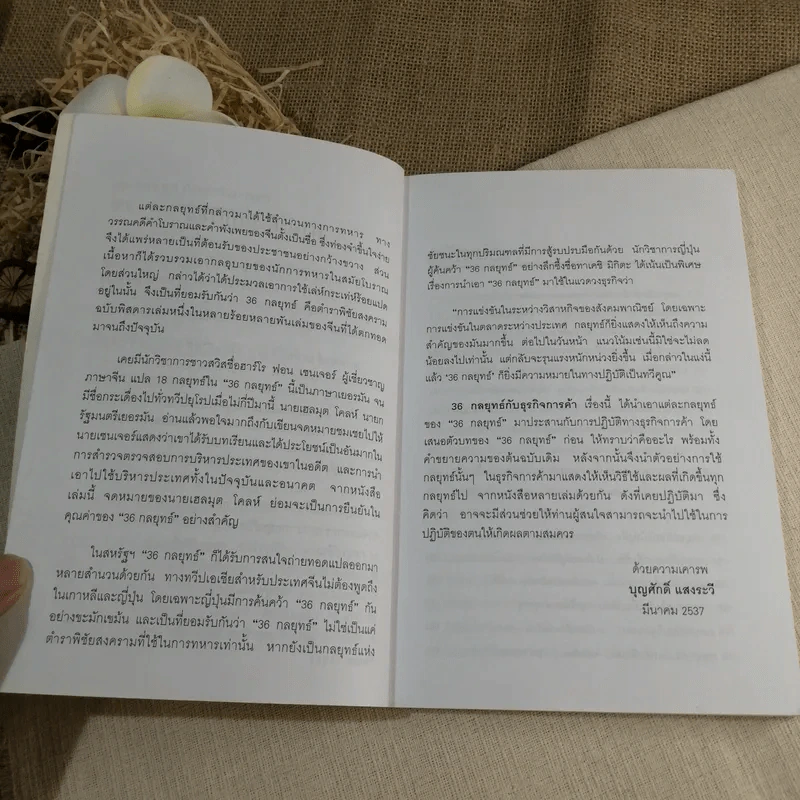 แต่ละกลยุทธ์ที่กล่าวมาได้ใช้สำนวนทางการทหาร ทาง
วรรณคดีคำโบราณและคำพังเพยของจีนตั้งเป็นชื่อ ซึ่งท่องจำขึ้นใจง่าย
จึงได้แพร่หลายเป็นที่ต้อนรับของประชาชนอย่างกว้างขวาง ส่วน
เนื้อหาก็ได้รวบรวมเอากลอุบายของนักการทหารในสมัยโบราณ
โดยส่วนใหญ่ กล่าวได้ว่าได้ประมวลเอาการใช้เล่ห์กระเท่ห์ร้อยแปด
อยู่ในนั้น จึงเป็นที่ยอมรับกันว่า 36 กลยุทธ์ คือตำราพิชัยสงคราม
ฉบับพิสดารเล่มหนึ่งในหลายร้อยหลายพันเล่มของจีนที่ได้ตกทอด
มาจนถึงปัจจุบัน
เคยมีนักวิชาการชาวสวิสชื่อฮาร์โร ฟอน เซนเจอร์ ผู้เชี่ยวชาญ
ภาษาจีน แปล 18 กลยุทธ์ใน “36 กลยุทธ์” นี้เป็นภาษาเยอรมัน จน
มีชื่อกระเดื่องไปทั่วทวีปยุโรปเมื่อไม่กี่ปีมานี้ นายเฮลมุต โคลห์ นายก
รัฐมนตรีเยอรมัน อ่านแล้วพอใจมากถึงกับเขียนจดหมายชมเชยไปให้
นายเซนเจอร์แสดงว่าเขาได้รับบทเรียนและได้ประโยชน์เป็นอันมากใน
การสำรวจตรวจสอบการบริหารประเทศของเขาในอดีต และการนำ
เอาไปใช้บริหารประเทศทั้งในปัจจุบันและอนาคต จากหนังสือ
เล่มนี้ จดหมายของนายเฮลมุต โคลห์ ย่อมจะเป็นการยืนยันใน
คุณค่าของ “36 กลยุทธ์” อย่างสำคัญ
ในสหรัฐฯ “36 กลยุทธ์” ก็ได้รับการสนใจถ่ายทอดแปลออกมา
หลายสำนวนด้วยกัน ทางทวีปเอเชียสำหรับประเทศจีนไม่ต้องพูดถึง
ในเกาหลีและญี่ปุ่น โดยเฉพาะญี่ปุ่นมีการค้นคว้า “36 กลยุทธ์” กัน
อย่างขะมักเขม้น และเป็นที่ยอมรับกันว่า “36 กลยุทธ์” ไม่ใช่เป็นแค่
ตำราพิชัยสงครามที่ใช้ในการทหารเท่านั้น หากยังเป็นกลยุทธ์แห่ง
ชัยชนะในทุกปริมณฑลที่มีการสู้รบปรบมือกันด้วย นักวิชาการญี่ปุ่น
ผู้ค้นคว้า “36 กลยุทธ์” อย่างลึกซึ้งชื่อทาเคชิ มิกิตะ ได้เน้นเป็นพิเศษ
เรื่องการนำเอา “36 กลยุทธ์” มาใช้ในแวดวงธุรกิจว่า
“การแข่งขันในระหว่างวิสาหกิจของสังคมพาณิชย์ โดยเฉพาะ
การแข่งขันในตลาดระหว่างประเทศ กลยุทธ์ก็ยิ่งแสดงให้เห็นถึงความ
สำคัญของมันมากขึ้น ต่อไปในวันหน้า แนวโน้มเช่นนี้มิใช่จะไม่ลด
น้อยลงไปเท่านั้น แต่กลับจะรุนแรงหนักหน่วงยิ่งขึ้น เมื่อกล่าวในแง่นี้
แล้ว ‘36 กลยุทธ์’ ก็ยิ่งมีความหมายในทางปฏิบัติเป็นทวีคูณ”
36 กลยุทธ์กับธุรกิจการค้า เรื่องนี้ ได้นำเอาแต่ละกลยุทธ์
ของ “36 กลยุทธ์” มาประสานกับการปฏิบัติทางธุรกิจการค้า โดย
เสนอตัวบทของ “36 กลยุทธ์” ก่อน ให้ทราบว่าคืออะไร พร้อมทั้ง
คำขยายความของต้นฉบับเดิม หลังจากนั้นจึงนำตัวอย่างการใช้
กลยุทธ์นั้นๆ ในธุรกิจการค้ามาแสดงให้เห็นวิธีใช้และผลที่เกิดขึ้นทุก
กลยุทธ์ไป จากหนังสือหลายเล่มด้วยกัน ดังที่เคยปฏิบัติมา ซึ่ง
คิดว่า อาจจะมีส่วนช่วยให้ท่านผู้สนใจสามารถจะนำไปใช้ในการ
ปฏิบัติของตนให้เกิดผลตามสมควร
ด้วยความเคารพ
บุญศักดิ์ แสงระวี
มีนาคม 2537